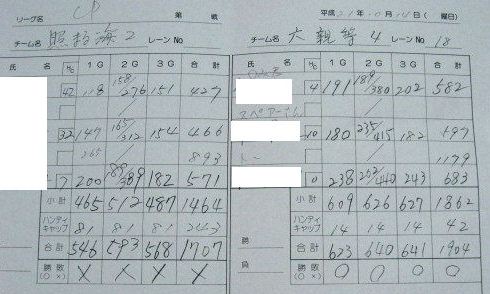 リーグ名 CP 第 戦
チーム名 照打海2 レーンNo
氏 名 H/C 1G 2G 3G 合計
42 118 158/276 151 427
32 147 165/312 154 466
265 893
7 200 189/389 182 571
小計 465 512 487 1464
ハンディキャップ 81 81 81 243
合計 546 593 568 1707
勝敗(○×) × × × ×
平成21年10月14日( 曜日)
チーム名 大親等4 レーンNo 18
氏 名 H/C 1G 2G 3G 合計
4 191 189/380 202 582
スペアーさん
10 180 235/415 182 597
1179
0 238 202/440 243 683
小計 609 626 627 1862
ハンディキャップ 14 14 14 42
合計 623 640 641 1904
勝敗(○×) ○ ○ ○ ○
勝
負